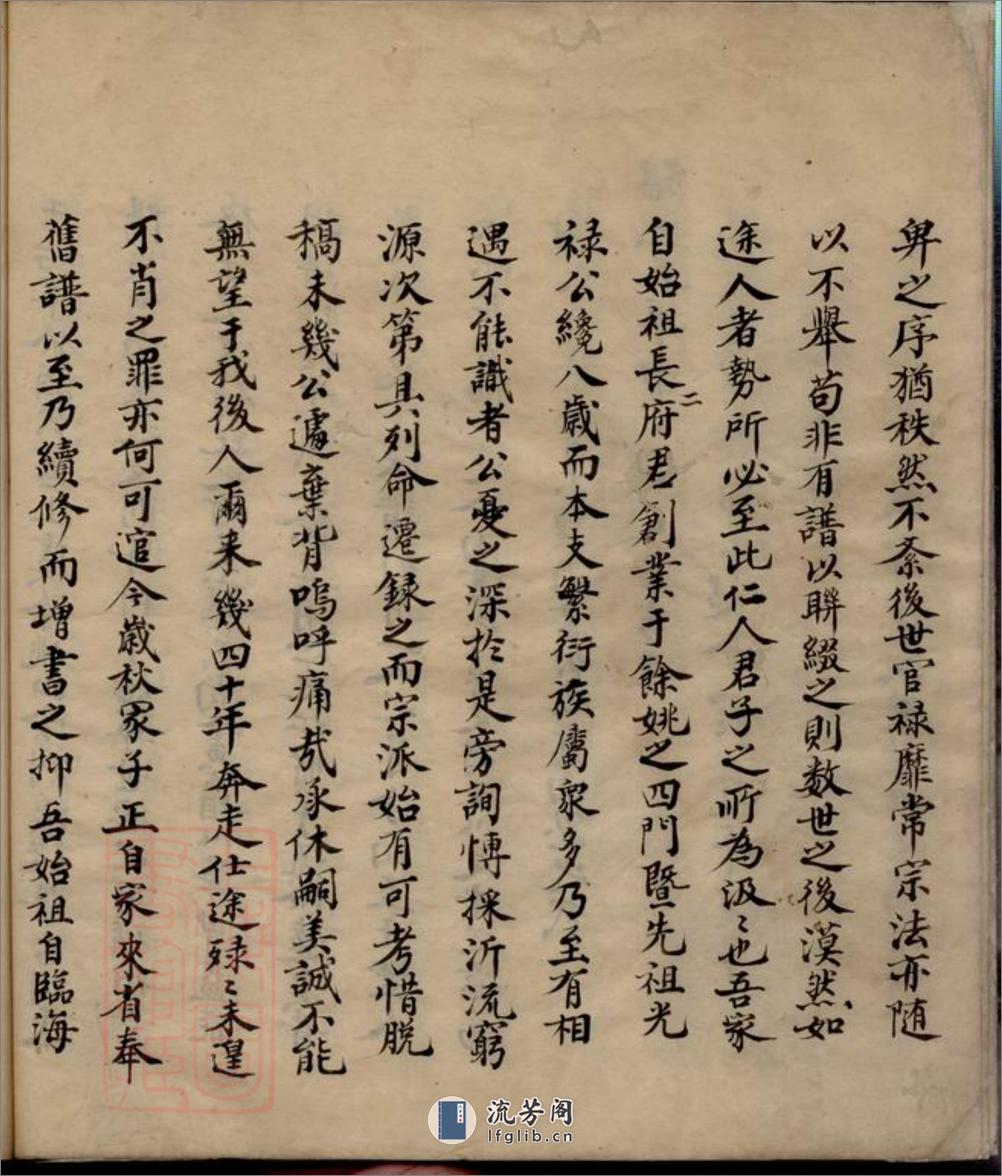 卑之序猶秩然不紊後世官禄靡常宗法亦随
以不舉苟非有譜以聯綴之則数世之後漠然如
途人者勢所必至此仁人君子之所為汲〻也吾家
自始祖長二府君創業于餘姚之四門暨先祖光
禄公纔八歲而本支繁衍族属衆多乃至有相
遇不能識者公憂之深於是旁詢博採沂流窮
源次第具列命遷録之而宗派始有可考惜脱
稿未幾公遽棄背嗚呼痛哉承休嗣美誠不能
無望于我後人爾来幾四十年奔走仕途碌〻未遑
不肖之罪亦何可逭今歲秋冢子正自家來省奉
舊譜以至乃續修而增書之抑吾始祖自臨海
流芳阁
lfglib.cn